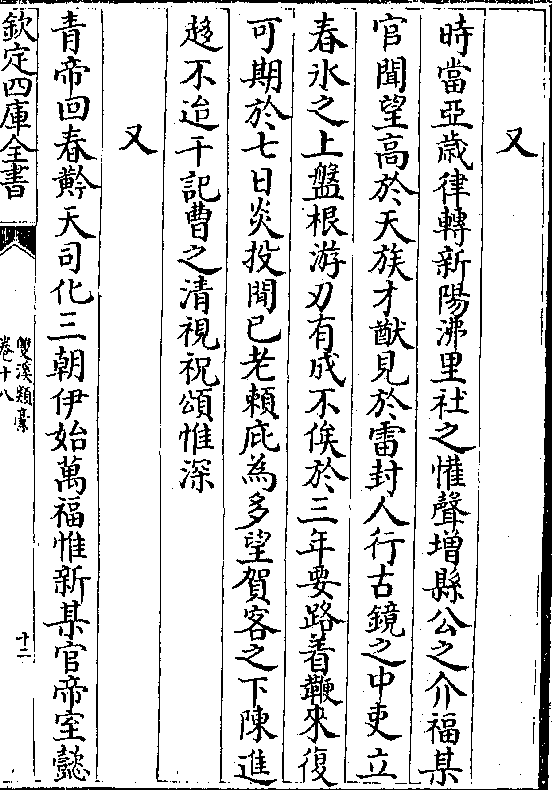 又
時當亞歲律轉新陽沸里社之懽聲增縣公之介福某
官聞望高於天族才猷見於雷封人行古鏡之中吏立
春氷之上盤根游刃有成不俟於三年要路着鞭來復
可期於七日炎投閒已老賴庇為多望賀客之下陳進
趍不迨干記曹之清視祝頌惟深
又
青帝回春黔天司化三朝伊始萬福惟新某官帝室懿
欽定四庫全書
雙溪類藁
卷十八
十二